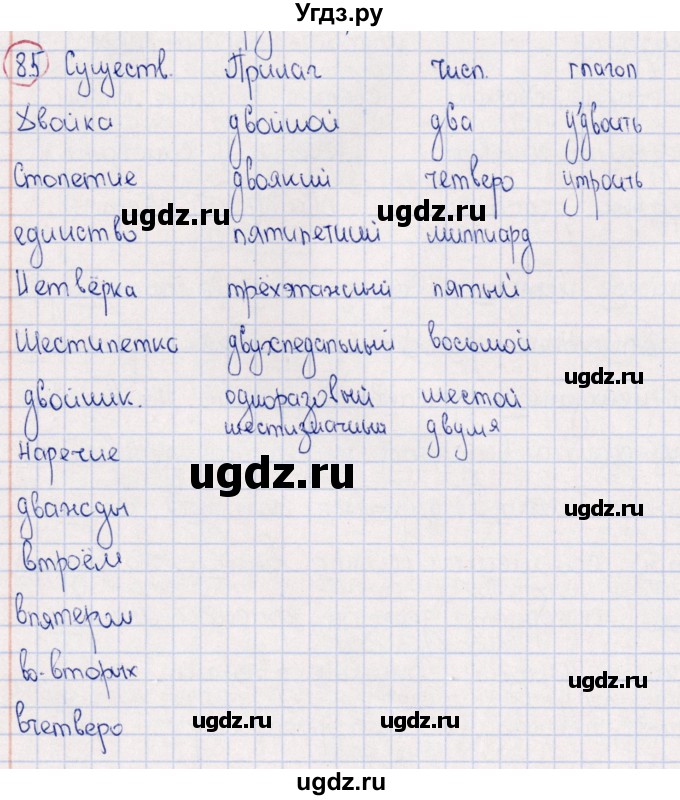 Угдз.ру
85 Существ. Прилаг числ. глагол
Двойка двойной два удвоить
Столетие двоякий четверо утроить
ugdz.ru ugdz.ru
единство пятилетний миллиард
Четвёрка трёхэтажный пятый
Шестилетка двухпедальный восьмой
ugdz.ru
двойник. одноразовый шестой
шестизначный двумя
Наречие
ugdz.ru
дважды
ugdz.ru
втроём
впятером
во-вторых
ugdz.ru
вчетверо
ugdz.ru ugdz.ru
ugdz.ru